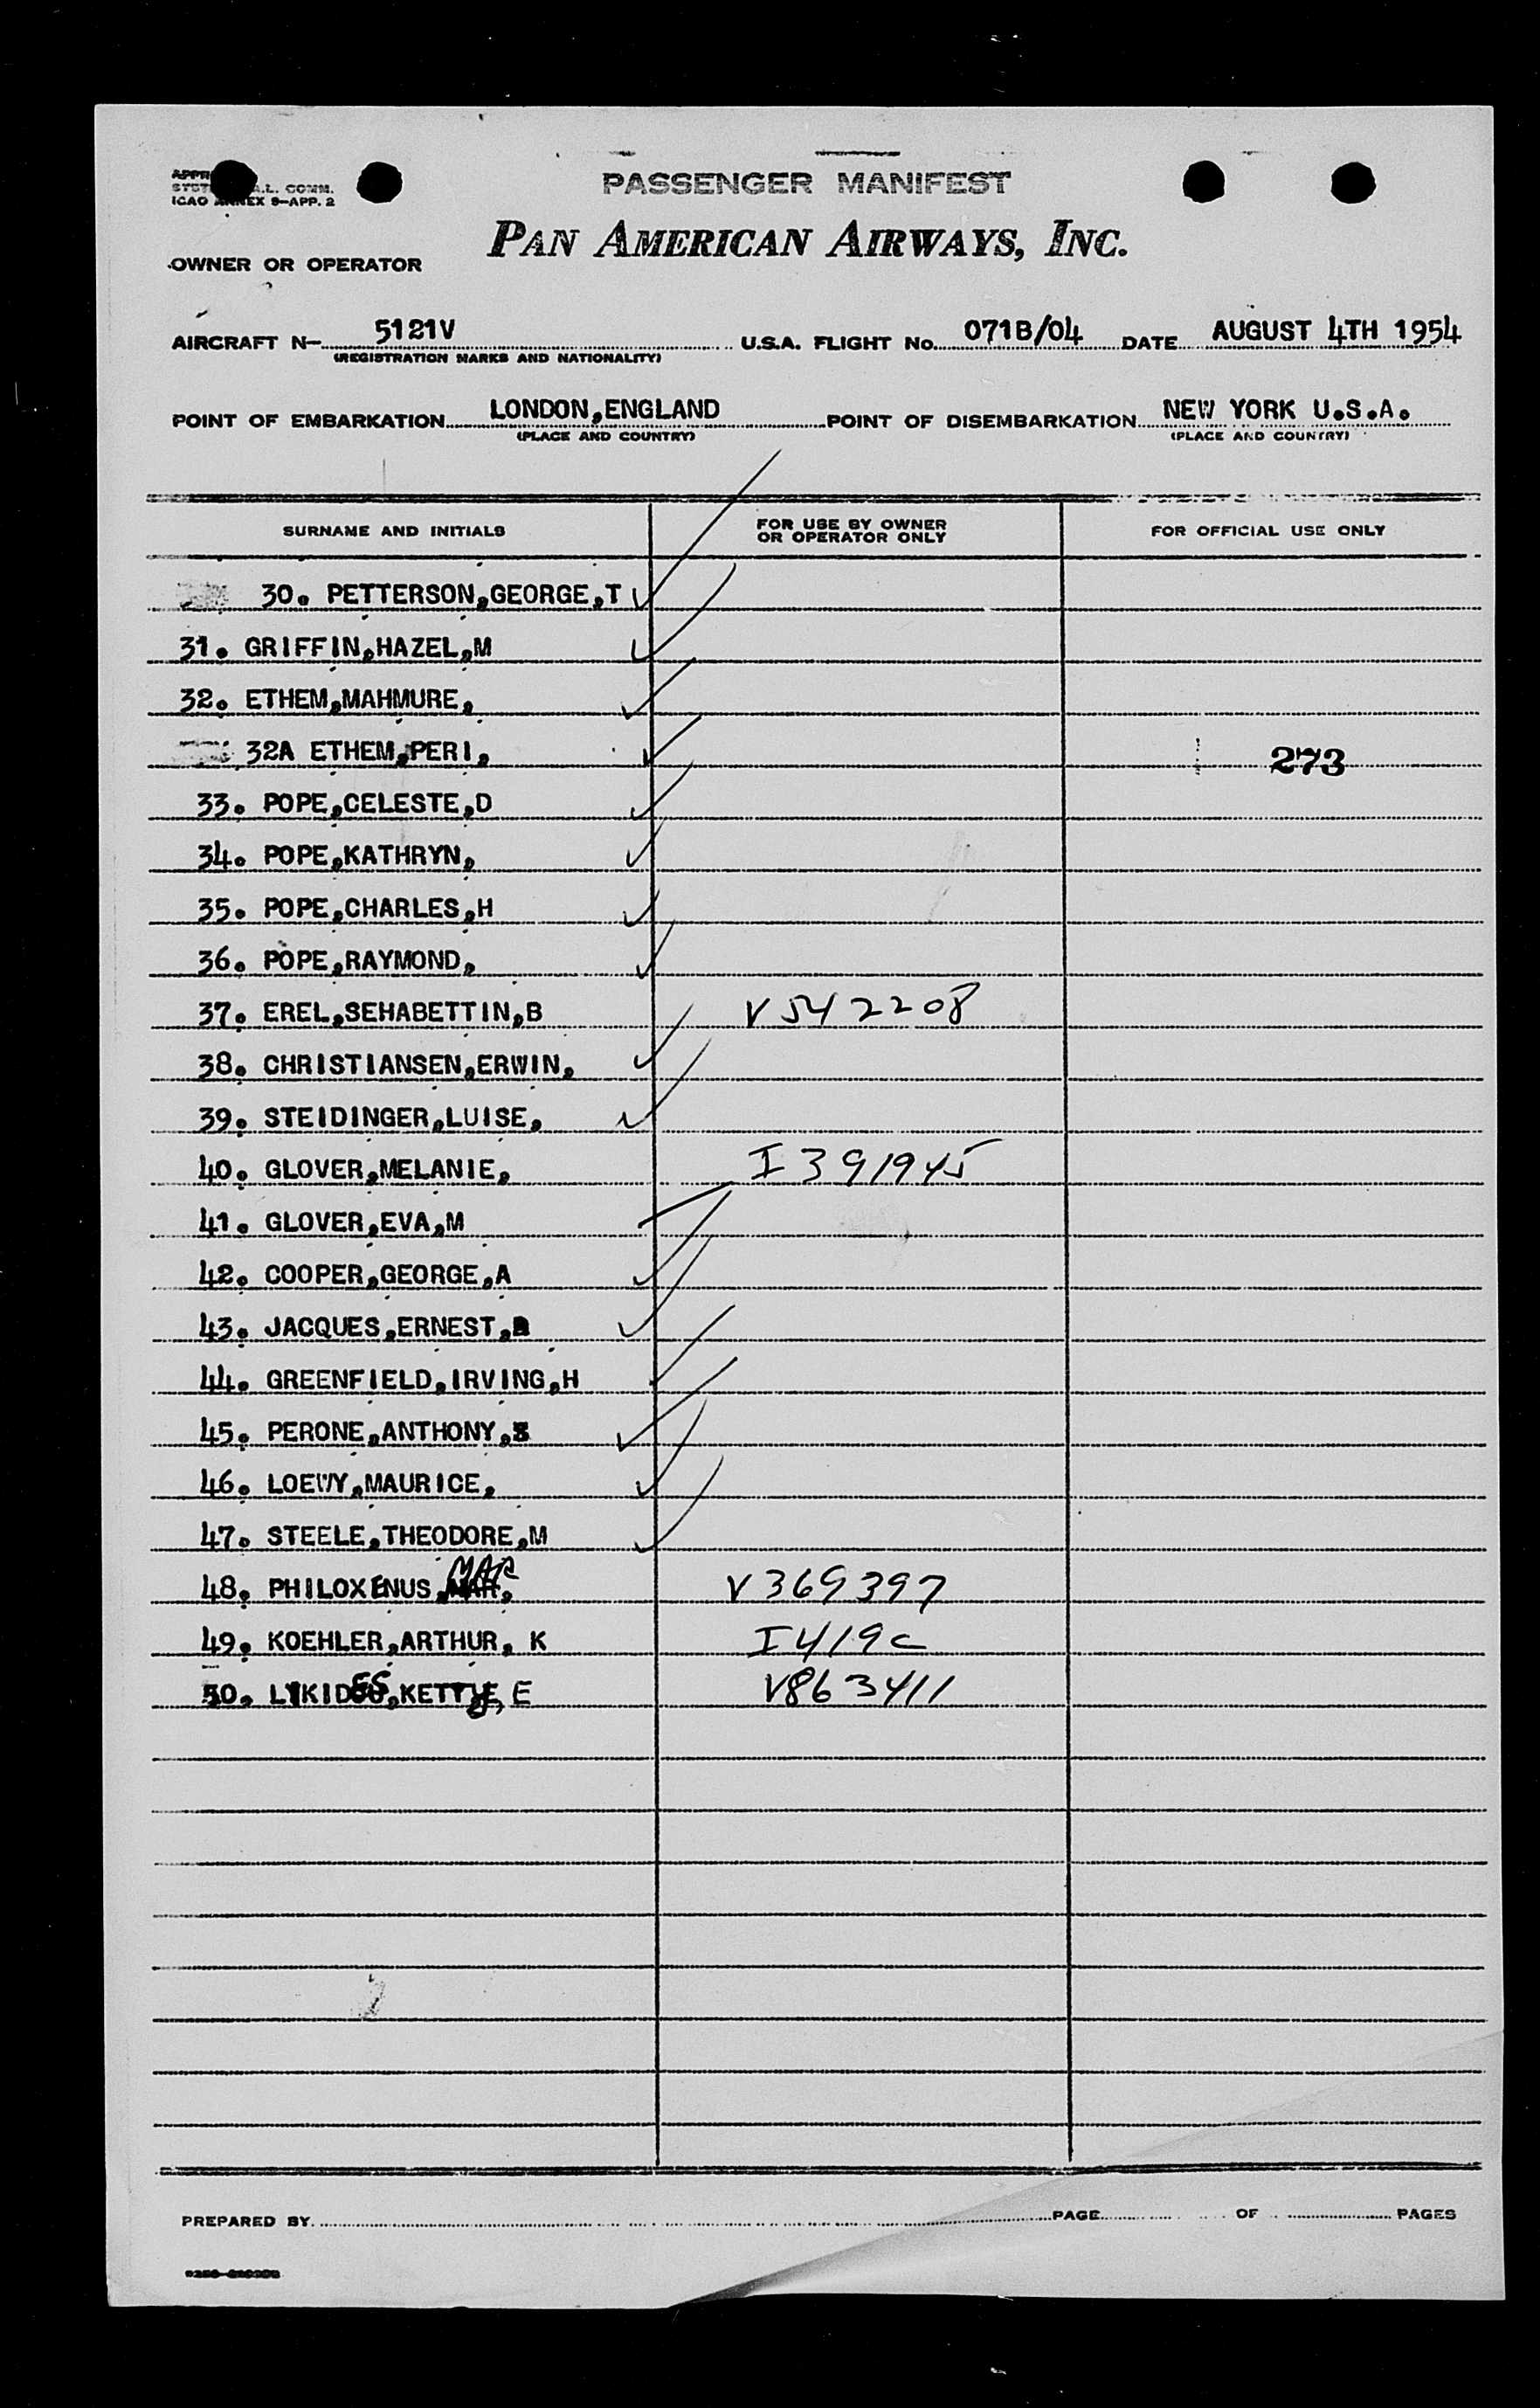 PASSENGER MANIFEST
A.L. COMM.
ICAO ANNEX 9-APP. 2
PAN AMERICAN AIRWAYS, INC.
OWNER OR OPERATOR
AIRCRAFT N- 5121V U.S.A. FLIGHT No. 071B/04 DATE AUGUST 4TH 1954
(REGISTRATION MARKS AND NATIONALITY)
POINT OF EMBARKATION LONDON,ENGLAND POINT OF DISEMBARKATION NEW YORK U.S.A.
(PLACE AND COUNTRY) (PLACE AND COUNTRY)
SURNAME AND INITIALS FOR USE BY OWNER OR OPERATOR ONLY FOR OFFICIAL USE ONLY
30. PETTERSON,GEORGE,T
31. GRIFFIN,HAZEL,M
32. ETHEM,MAHMURE,
32A ETHEM,PERI, 273
33. POPE,CELESTE,D
34. POPE,KATHRYN,
35. POPE,CHARLES,H
36. POPE,RAYMOND,
37. EREL,SEHABETTIN,B V542208
38. CHRISTIANSEN,ERWIN,
39. STEIDINGER,LUISE,
40. GLOVER,MELANIE, I391945
41. GLOVER,EVA,M
42. COOPER,GEORGE,A
43. JACQUES,ERNEST,
44. GREENFIELD,IRVING,H
45. PERONE,ANTHONY,
46. LOEWY,MAURICE,
47. STEELE,THEODORE,M
48. PHILOXENUS, MAR, V369397
49. KOEHLER,ARTHUR, K I419c
50. V863411
PREPARED BY PAGE OF PAGES